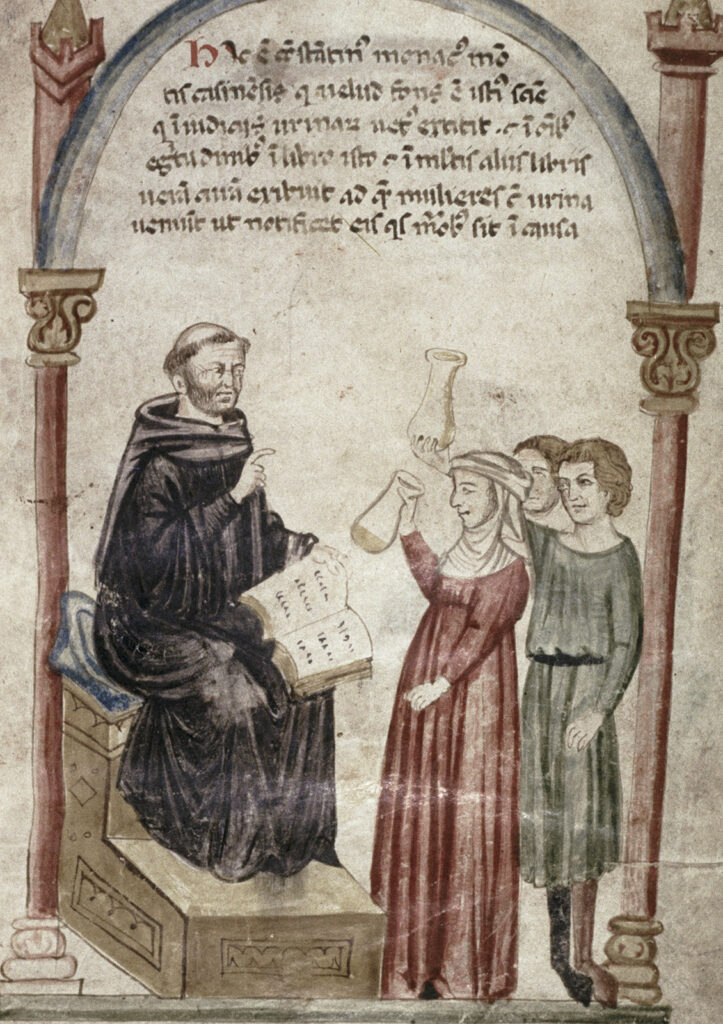 Hic ē ꝯ̄stātinꝰ monacꝰ mō
tis casinēsis q̄ uelud fons ē istiꝰ sciē
q̄ ī iudiciis urinaꝝ extitit ⁊ ī oīb
egͥtudīnib ī libro isto ⁊ ī ml̄tis aliis libris
uerā curā exibuit ad q̄ mulieres c̄ urina
ueniūt ut notificet eis qͥs mōrbꝰ sit ī causa